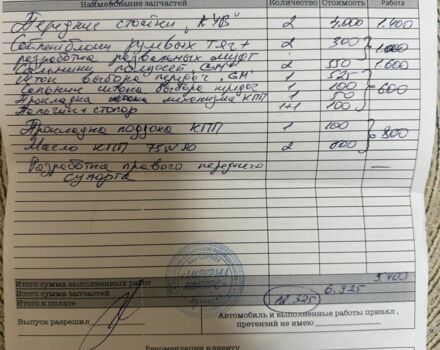 Наименование запчастей Количество Стоимость Работа
Передние стойки "KYB" 2 4,000 1.400
Сайлентблоки рулевых тяг + 2 300 1.000
разработка развальных муфт
Сальники полуосей "GM" 2 550 1.600
выбора передач "GM" 1 525
Сальник штока выбора передач 1 100 600
Прокладка механизма КПП 1 50
+ стопор 1+1 100
Прокладка поддона КПП 1 100 800
Масло КПП 75W90 2
Разработка правого переднего —
супорта
Итого сумма выполненных работ 5.400
Итого сумма запчастей 6.925
Итого к оплате 12.325
Выпуск разрешил
Автомобиль и выполненные работы принял,
претензий не имею
Рекомендации клиенту